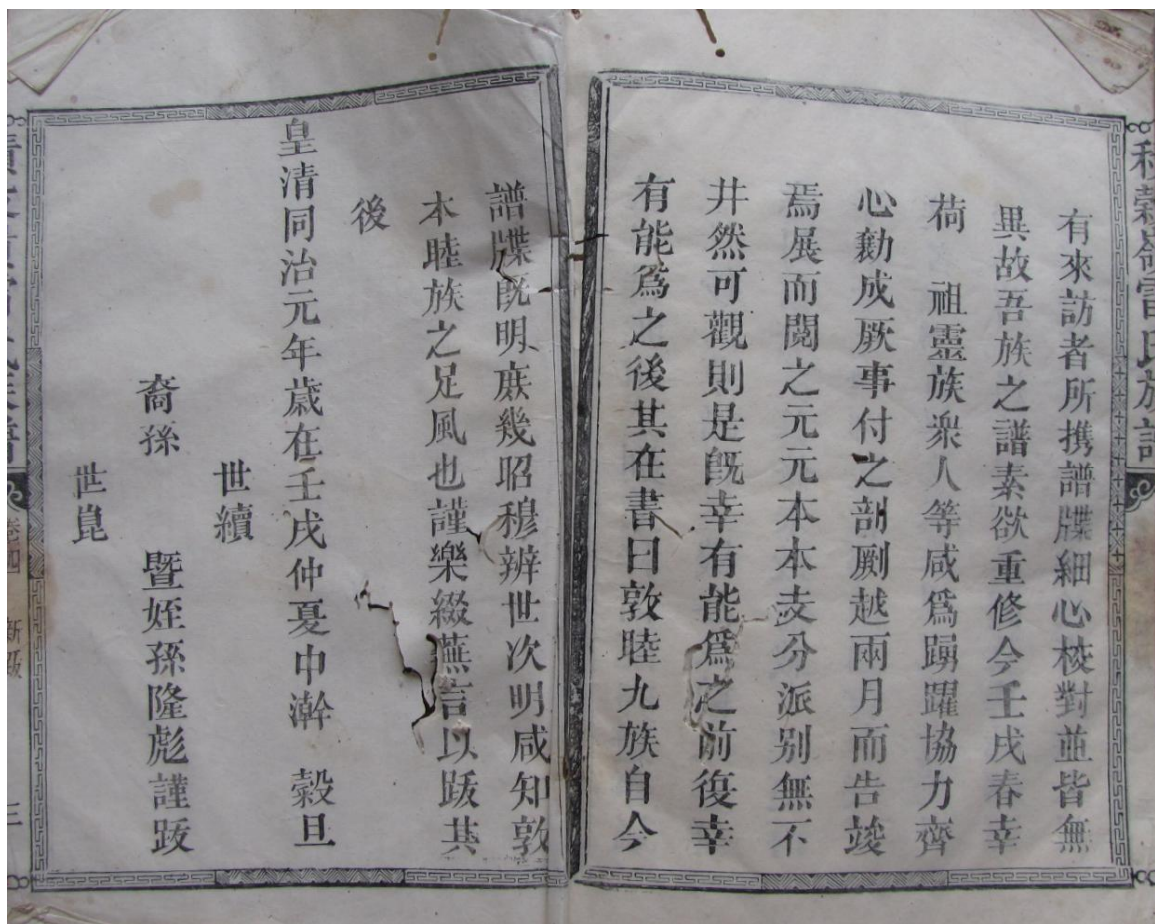 有來訪者所携譜牒細心校對並皆無
異故吾族之譜素欲重修今壬戌春幸
荷　祖靈族衆人等咸爲踴躍協力齊
心勷成厥事付之剞劂越兩月而告竣
焉展而閱之元元本本支分派别無不
井然可觀則是旣幸有能爲之前復幸
有能爲之後其在書曰敦睦九族自今
譜牒旣明庻幾昭穆辨世次明咸知敦
本睦族之足風也謹樂綴蕪言以䟦其
後
皇清同治元年歲在壬戌仲夏中澣　穀旦
世續
裔孫　　暨姪孫隆彪謹䟦
世崑
卷四
三